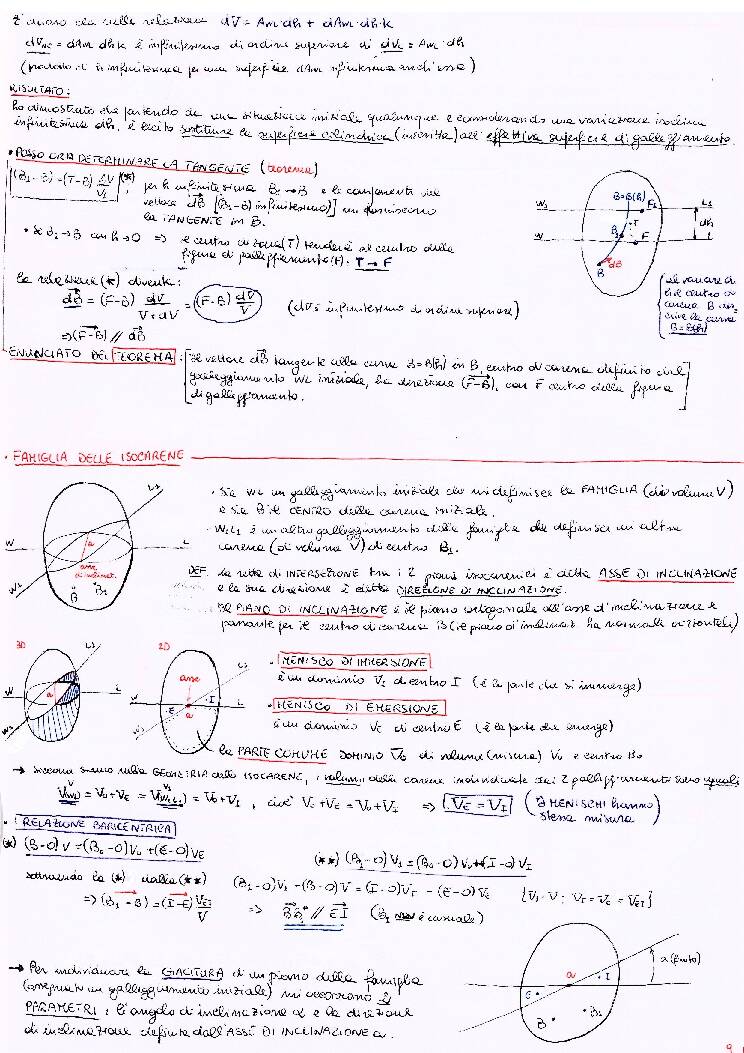 È chiaro che nelle relazione dV = Am·dh + dAm·dh·k
dVNC = dAm dh k è infinitesimo di ordine superiore di dVc = Am·dh
(prodotto di un infinitesimo per una superficie dAm infinitesima anch'essa)
RISULTATO:
ho dimostrato che partendo da una situazione iniziale qualunque e considerando una variazione isoclina
infinitesima dh, è lecito sostituire la superficie cilindrica (inscritta) all'effettiva superficie di galleggiamento.
• POSSO ORA DETERMINARE LA TANGENTE (teorema)
(B1-B) = (T-B) ΔV/V1 (*), per h infinitesimo B1→B e le componenti del
vettore dB [(B1-B) infinitesimo] mi forniscono
la TANGENTE in B.
• Se B1→B con h→0 ⇒ il centro di zona (T) tenderà al centro della
figura di galleggiamento (F). T→F
la relazione (*) diventa:
dB = (F-B) dV/V+dV = (F-B) dV/V (dV è infinitesimo di ordine superiore)
⇒ (F-B) // dB
W1 B=B(h) F1 L1
dh
W B1 T F L
B dB
al variare di
h il centro di
carena B des-
crive la curva
B=B(h)
ENUNCIATO DEL TEOREMA: [il vettore dB tangente alla curva B=B(h) in B, centro di carena definito dal
galleggiamento WL iniziale, ha direzione (F-B), con F centro della figura
di galleggiamento.]
• FAMIGLIA DELLE ISOCARENE
L1
W L
a
asse
d'inclinaz.
W1
B B1
• Sia WL un galleggiamento iniziale che mi definisce la FAMIGLIA (di volume V)
e sia B il CENTRO della carena iniziale.
• W1L1 è un altro galleggiamento della famiglia che definisce un'altra
carena (di volume V) di centro B1.
DEF. la retta di INTERSEZIONE tra i 2 piani isocarenici è detta ASSE DI INCLINAZIONE
e la sua direzione è detta DIREZIONE DI INCLINAZIONE.
Il PIANO DI INCLINAZIONE è il piano ortogonale all'asse d'inclinazione e
passante per il centro di carena B (il piano d'inclinaz. ha normale orizzontale)
3D L1
W a L
W1
2D L1
asse
W E a I L
W1
• MENISCO DI IMMERSIONE
è un dominio VI di centro I (è la parte che si immerge)
• MENISCO DI EMERSIONE
è un dominio VE di centro E (è la parte che emerge)
la PARTE COMUNE DOMINIO V0 di volume (misura) V0 e centro B0
→ Siccome siamo nella GEOMETRIA delle ISOCARENE, i volumi delle carene individuate dai 2 galleggiamenti sono uguali
V(WL) = V0+VE = V(W1L1) = V0+VI, cioè VE+V0 = V0+VI ⇒ VE = VI (2 MENISCHI hanno
stessa misura)
• RELAZIONE BARICENTRICA
(*) (B-O)V = (B0-O)V0 + (E-O)VE
(**) (B1-O)V1 = (B0-O)V0 + (I-O)VI
sottraendo la (*) dalla (**) (B1-O)V1 - (B-O)V = (I-O)VI - (E-O)VE {V1=V; VI=VE=VEI}
⇒ (B1-B) = (I-E) VEI/V ⇒ BB1 // EI
→ Per individuare la GIACITURA di un piano della famiglia
(assegnato un galleggiamento iniziale) mi occorrono 2
PARAMETRI: l'angolo di inclinazione α e la direzione
di inclinazione definita dall'ASSE DI INCLINAZIONE a.
a
α (finito)
E I
B B1
9